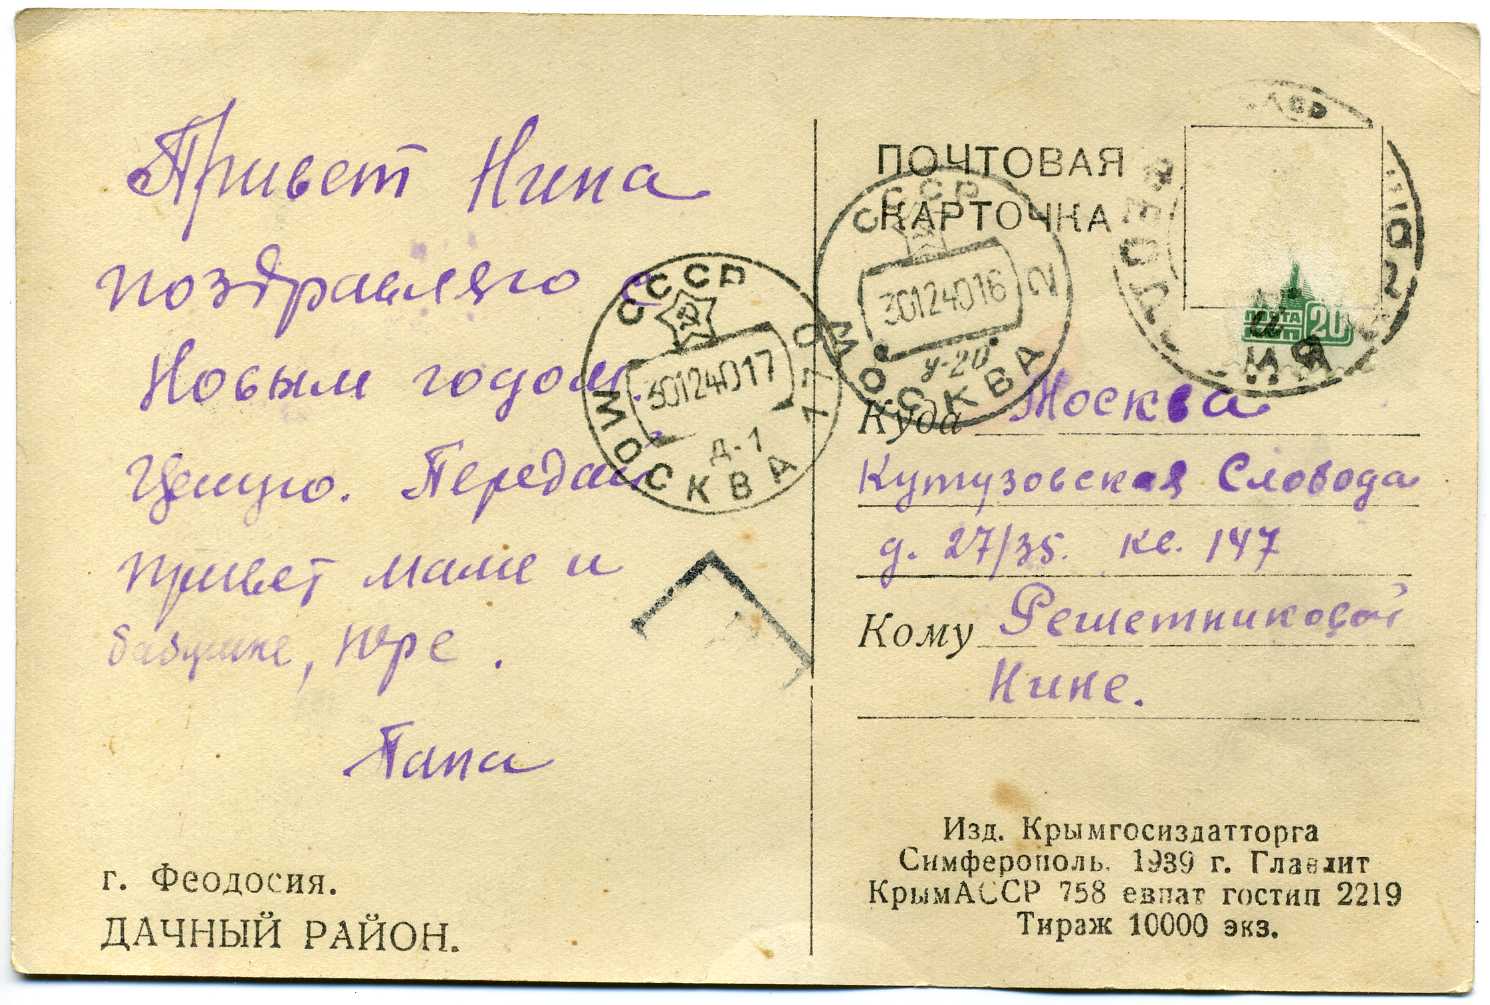 Привет Нина
поздравляю с
Новым годом.
Целую. Передай
привет маме и
бабушке, Юре.
Папа
г. Феодосия.
ДАЧНЫЙ РАЙОН.
ПОЧТОВАЯ
КАРТОЧКА
СССР
30124017
Д-1
МОСКВА
СССР
30124016
У-20
МОСКВА 2
ПОЧТА
20
Куда Москва
Кутузовская Словода
д. 27/35. кв. 147
Кому Решетниковой
Нине.
Изд. Крымгосиздатторга
Симферополь. 1939 г. Главлит
КрымАССР 758 евпат гостип 2219
Тираж 10000 экз.